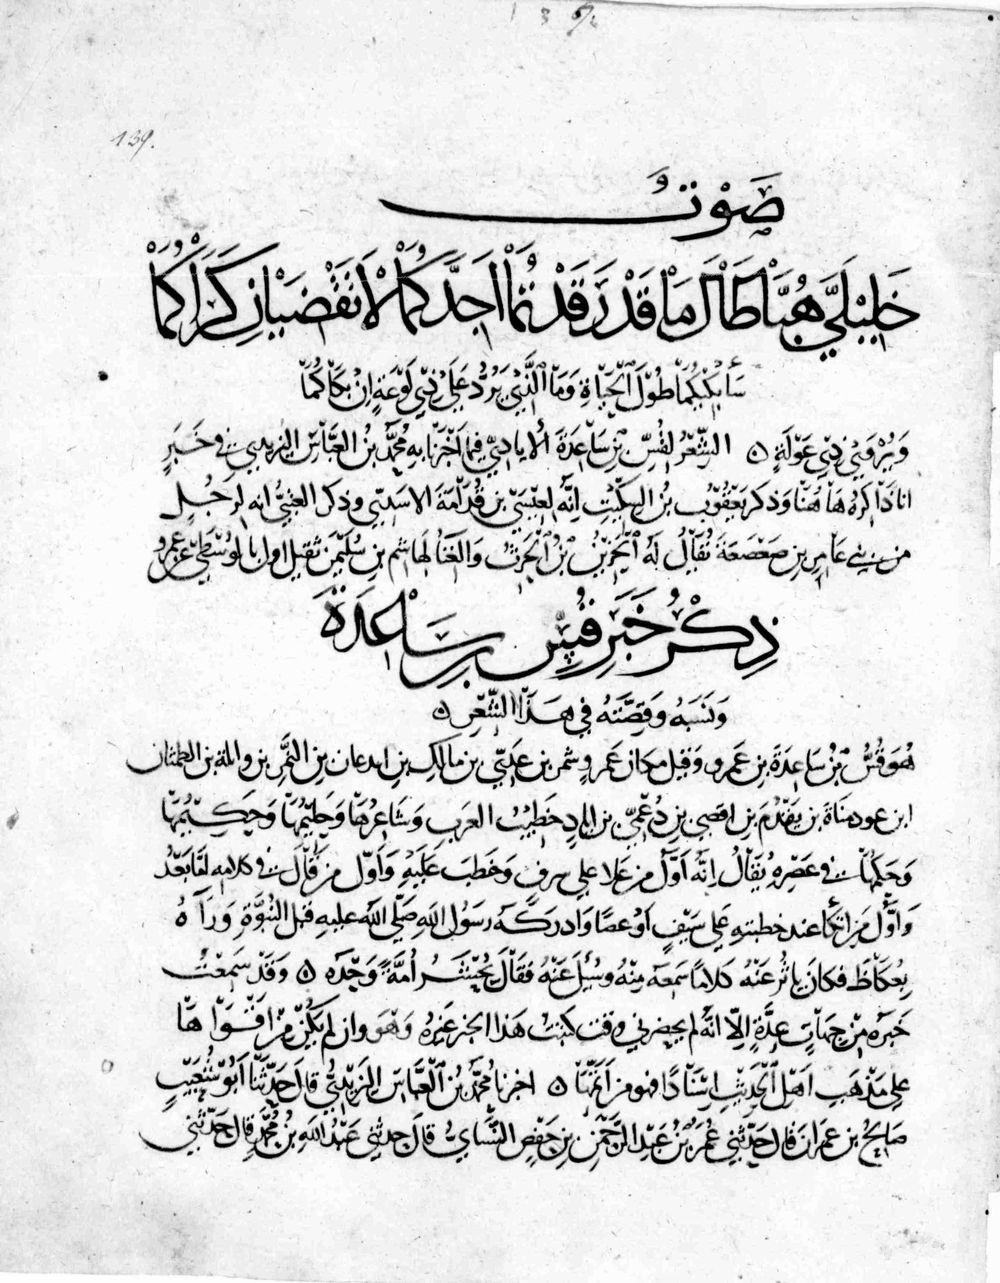 139.
صَوْتٌ
خَلِيْلَيَّ هُبَّا طَالَ مَا قَدْ رَقَدْتُمَا اَجِدَّكُمَا لَا تَقْضِيَانِ كَرَاكُمَا
سَأَبْكِيْكُمَا طُوْلَ الْحَيَاةِ وَمَا الَّذِيْ يَرُدُّ عَلَى ذِيْ لَوْعَةٍ اِنْ بَكَاكُمَا
وَيُرْوَى ذِيْ عَوْلَةٍ ٥ الشِّعْرُ لِقُسِّ بْنِ سَاعِدَةَ الايادِيِّ فيما اَخْبَرَنَا بِهِ مُحَمَّدُ بْنُ العَبَّاسِ اليَزِيْدِيُّ فِيْ خَبَرٍ
انا ذَاكِرُهُ هَاهُنَا وَذكر يَعْقُوْبُ بْنُ السِّكِّيْتِ اِنَّهُ لِعِيْسَى بْنِ قُدَامَةَ الاسَدِيِّ وذكر العُتْبِيُّ انه لِرَجُلٍ
من بَنِيْ عَامِرِ بْنِ صَعْصَعَةَ يُقَالُ لَهُ الْحَزِيْنُ بْنُ الْحَرِثِ وَالغِنَا لهَاشِمِ بْنِ سُلَيْمَن ثَقِيل اول بالْوُسْطَى عَنْ عَمرو
ذِكْرُ خَبَرِ قُسِّ بن سَاعِدَةَ
وَنَسَبِهِ وَقِصَّتِهِ فِي هَذَا الشِّعْرِ ٥
هُوَ قُسُّ بْنُ سَاعِدَةَ بْنِ عَمْرٍو وَقِيْلَ مكان عَمرٍو شَمر بن عَدِيّ بن مَالِكِ بْنِ ايدعان بْنِ النَّمِر بن وائلة بن الطمثان
ابن عوذ مَنَاةَ بْنِ يَقْدُمَ بْنِ افصى بْنِ دُعْمِيِّ بن ايادٍ خَطِيْبُ العَرَبِ وَشَاعِرُهَا وَحَلِيْمُهَا وَحَكِيْمُهَا
وَحَكَمُهَا فِيْ عَصْرِهِ يُقَالُ اِنَّهُ اَوَّلُ مَنْ عَلَا على شرف وَخَطَبَ عَلَيْهِ وَاَوّلُ مَنْ قَالَ فِيْ كلامه امَّا بَعْدُ
وَاَوَّلُ مَنِ اتَّكَأَ عند خطبته على سَيْفٍ اَوْ عصًا وَادركَهُ رَسُولُ اللهِ صَلّى اللهُ عليه قبل النُّبُوَّةِ وَرَآهُ
بِعُكَاظَ فكان يأثُرُ عَنْهُ كلامًا سَمِعَهُ مِنْهُ وسُئِلَ عَنْهُ فقال يُحْشَرُ اُمَّةً وَحْدَه ٥ وقد سَمِعْتُ
خَبَرَهُ مِنْ جِهَاتٍ عِدَّةٍ اِلّا انَّهُ لم يحضرني وقت كتبتُ هَذا الخبر غيرُهُ وَهُوَ وان لم يَكُنْ مِنْ اَقْوَاهَا
على مَذْهَبِ اَهْلِ الْحَدِيْثِ اِسْنَادًا فهو من اتَمِّهَا ٥ اخبرنا مُحَمَّدُ بْنُ الْعَبَّاسِ اليَزِيْدِيُّ قال حَدَّثَنَا اَبُوْ شُعَيْبٍ
صَالِحُ بن عِمرَانَ قَالَ حَدَّثَنِيْ عُمَرُ بْنُ عَبْدِ الرَّحْمٰنِ بْنِ حَفْصٍ النَّسَايُّ قَالَ حدثني عَبْدُ اللهِ بْنُ مُحَمَّدٍ قال حَدَّثَنِيْ